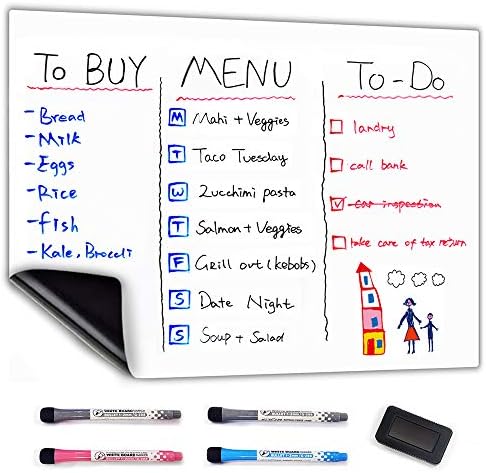 To BUY
- Bread
- Milk
- Eggs
- Rice
- fish
- Kale, Broccli
MENU
M Mahi + Veggies
T Taco Tuesday
W Zucchimi pasta
T Salmon + Veggies
F Grill out (kebobs)
S Date Night
S Soup + Salad
To-Do
landry
call bank
car inspection
take care of tax return
WHITE BOARD
WHITE BOARD
WHITE BOARD
WHITE BOARD